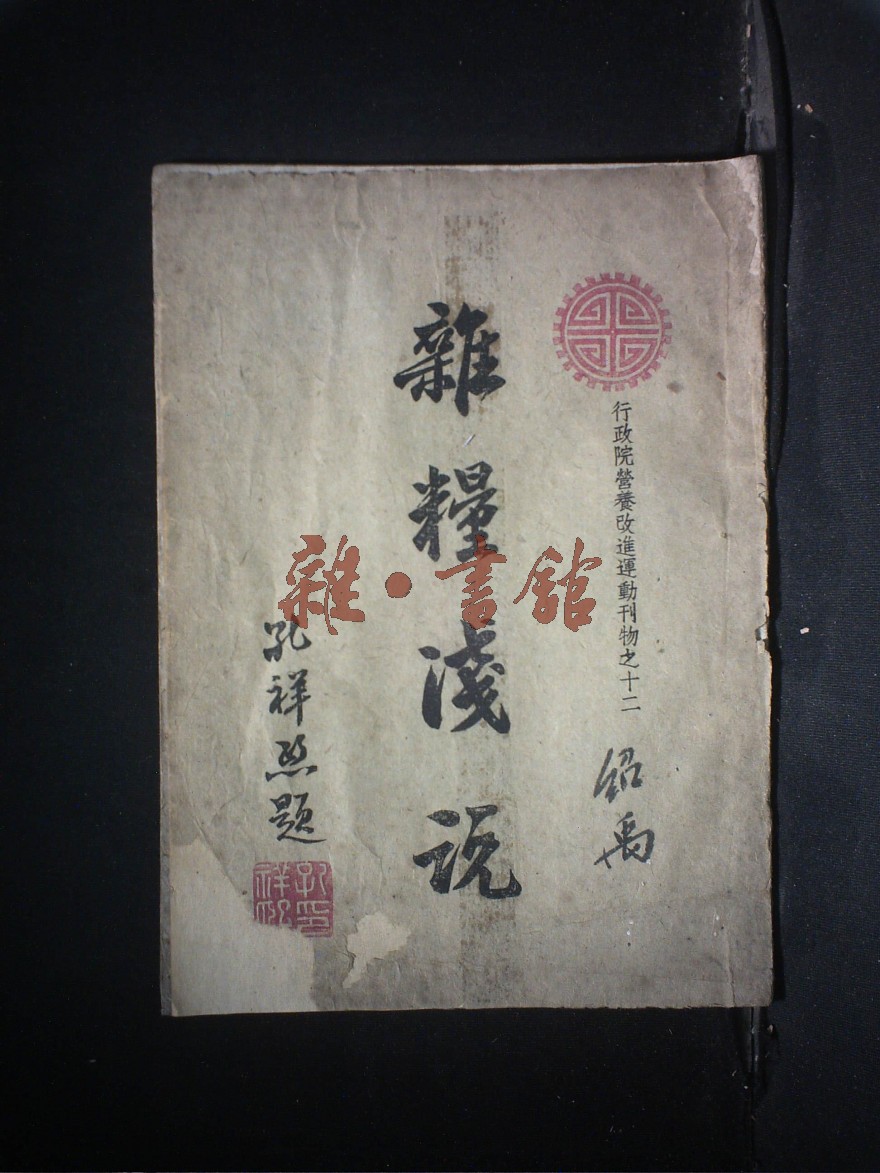 行政院營養改進運動刊物之十二
紹禹
雜糧淺說
孔祥熙題
孔祥熙印
雜·書館